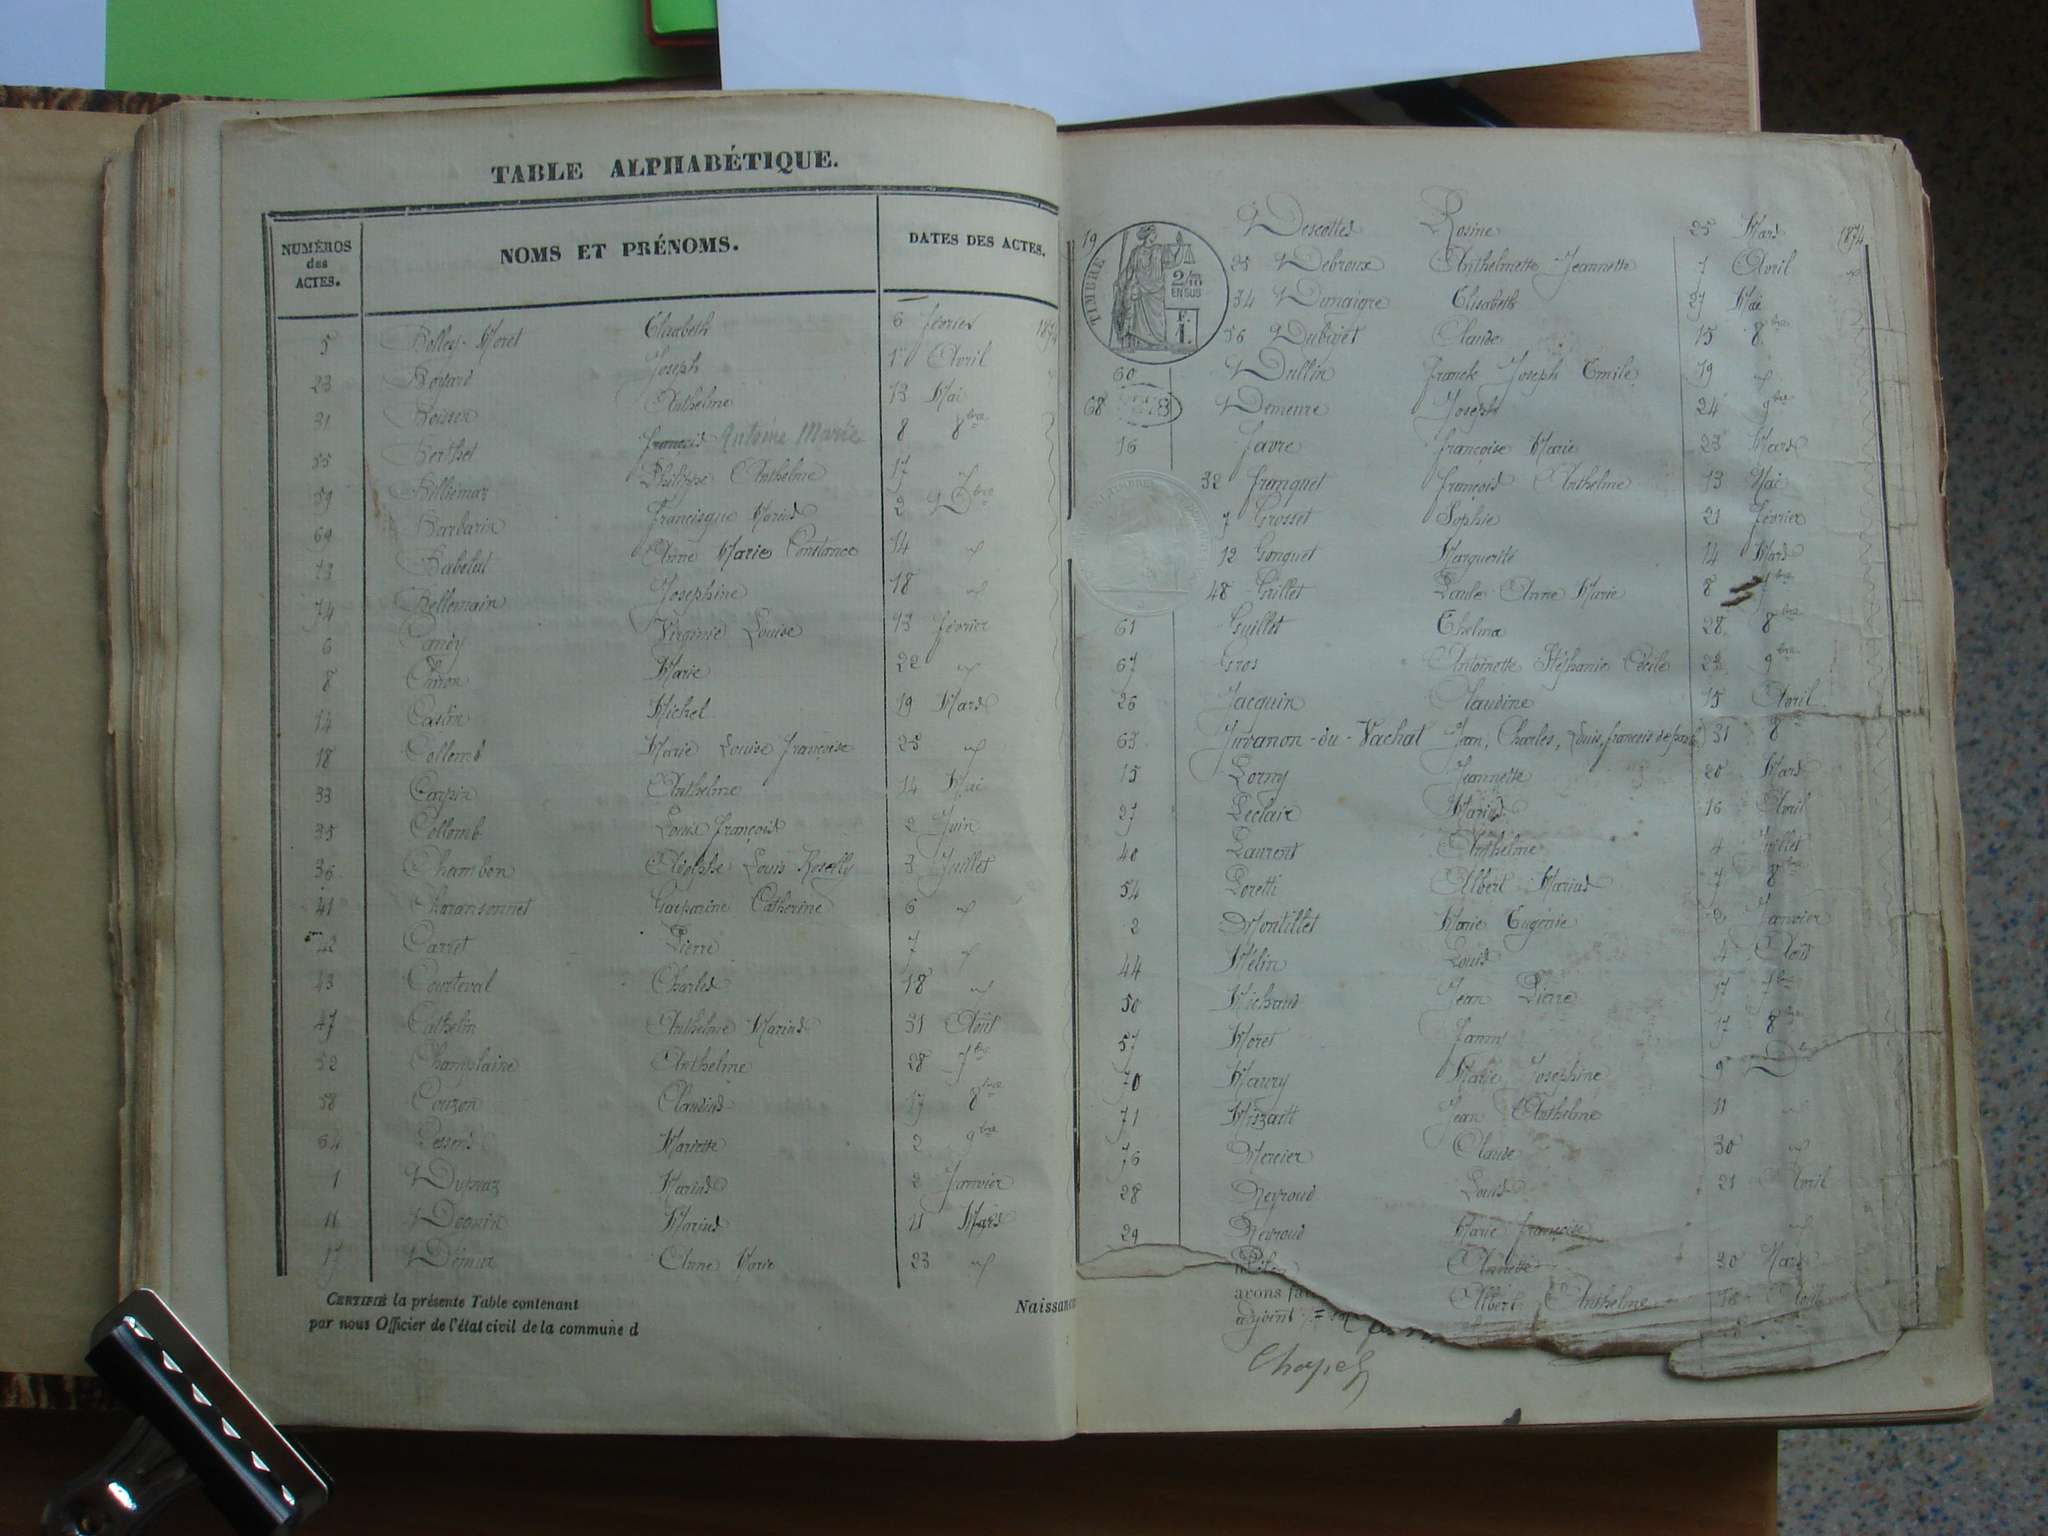 TABLE ALPHABÉTIQUE.
NUMÉROS des ACTES. NOMS ET PRÉNOMS. DATES DES ACTES.
5 Bolley-Moret Elisabeth 6 février 1874
23 Bogard Joseph 1er Avril
31 Anthelme 13 Mai
55 Berthet françois Antoine Marie 8 8bre
59 Billiemaz Philippe Anthelme 17
69 Barbarin francisque Marius 2 Xbre
73 Anne Marie Constance 14
74 Bellemain Josephine 18
6 Virginie Louise 13 février
8 Marie 22
14 Caslin Michel 19 Mars
18 Collomb Marie Louise françoise 25
33 Carpin Anthelme 14 Mai
35 Collomb Louis françois 2 Juin
36 Chambon Adolphe Louis 3 Juillet
41 Charansonnet Gasparine Catherine 6
42 Carret Pierre 7
43 Courteval Charles 18
47 Cathelin Anthelme Marius 31 Août
52 Champlaine Anthelme 28 7bre
58 Couzon Claudius 17 8bre
64 Mariette 2 9bre
1 Dupraz Marius 2 Janvier
11 Marius 11 Mars
17 Anne Marie 23
CERTIFIÉ la présente Table contenant Naissance
par nous Officier de l'état civil de la commune d
TIMBRE 2/10 EN SUS F. 1.
19 Descottes Rosine 25 Mars 1874
25 Debroux Anthelmette Jeannette 7 Avril
34 Dumaigre Elisabeth 27 Mai
56 Claude 15 8bre
60 Dullin Franck Joseph Emile 19
68 Demeure Joseph 24 9bre
16 Favre françoise Marie 23 Mars
32 françois Anthelme 13 Mai
7 Grosset Sophie 21 février
12 Gonguet Marguerite 14 Mars
48 Guillet Paule Anne Marie 8 7bre
61 Guillot Thelma 28 8bre
67 Gros Antoinette Stéphanie Cécile 9bre
26 Jacquin Claudine 15 Avril
63 Juvanon-du-Vachat Jean, Charles, Louis, françois de paule 31 8bre
15 Lorny Jeannette 20 Mars
27 Leclair Marius 16 Avril
40 Laurent Anthelme 4 Juillet
54 Loretti Albert Marius 7 8bre
2 Montillet Marie Eugénie 2 Janvier
44 Mélin Louis 4 Août
50 Michaud Jean Pierre 17 7bre
57 Moret Fanny 17 8bre
70 Maury Marie Josephine 9 Dbre
71 Jean Anthelme 11
76 Mercier Claude 30
28 Neyroud Louis 21 Avril
29 Neyroud Marie françoise
Annette 30 Mars
Albert Anthelme Août
avons fai
adjoint
Chapel